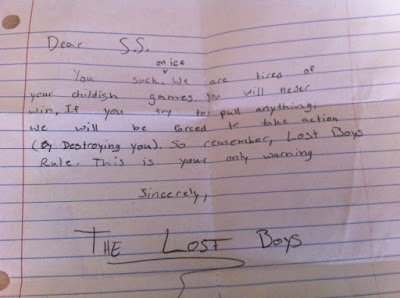 Dear S.S.
on ice
You suck. We are tired of
your childish games. You will never
win. If you try to pull anything,
we will be forced to take action
(By Destroying you). So remember, Lost Boys
Rule. This is your only warning
Sincerely,
THE LOST BOYS